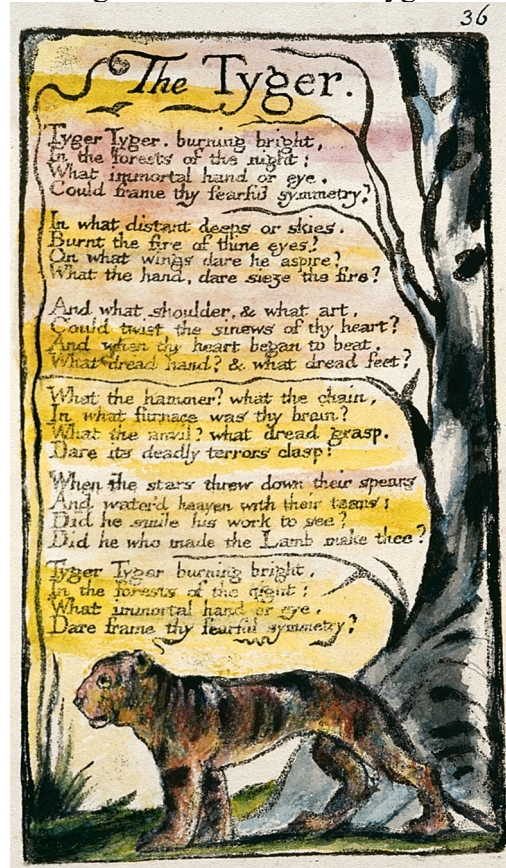 36
The Tyger.
Tyger Tyger. burning bright,
In the forests of the night;
What immortal hand or eye.
Could frame thy fearful symmetry?
In what distant deeps or skies.
Burnt the fire of thine eyes?
On what wings dare he aspire?
What the hand, dare sieze the fire?
And what shoulder, & what art,
Could twist the sinews of thy heart?
And when thy heart began to beat,
What dread hand? & what dread feet?
What the hammer? what the chain,
In what furnace was thy brain?
What the anvil? what dread grasp.
Dare its deadly terrors clasp?
When the stars threw down their spears
And water'd heaven with their tears:
Did he smile his work to see?
Did he who made the Lamb make thee?
Tyger Tyger burning bright,
In the forests of the night:
What immortal hand or eye,
Dare frame thy fearful symmetry?